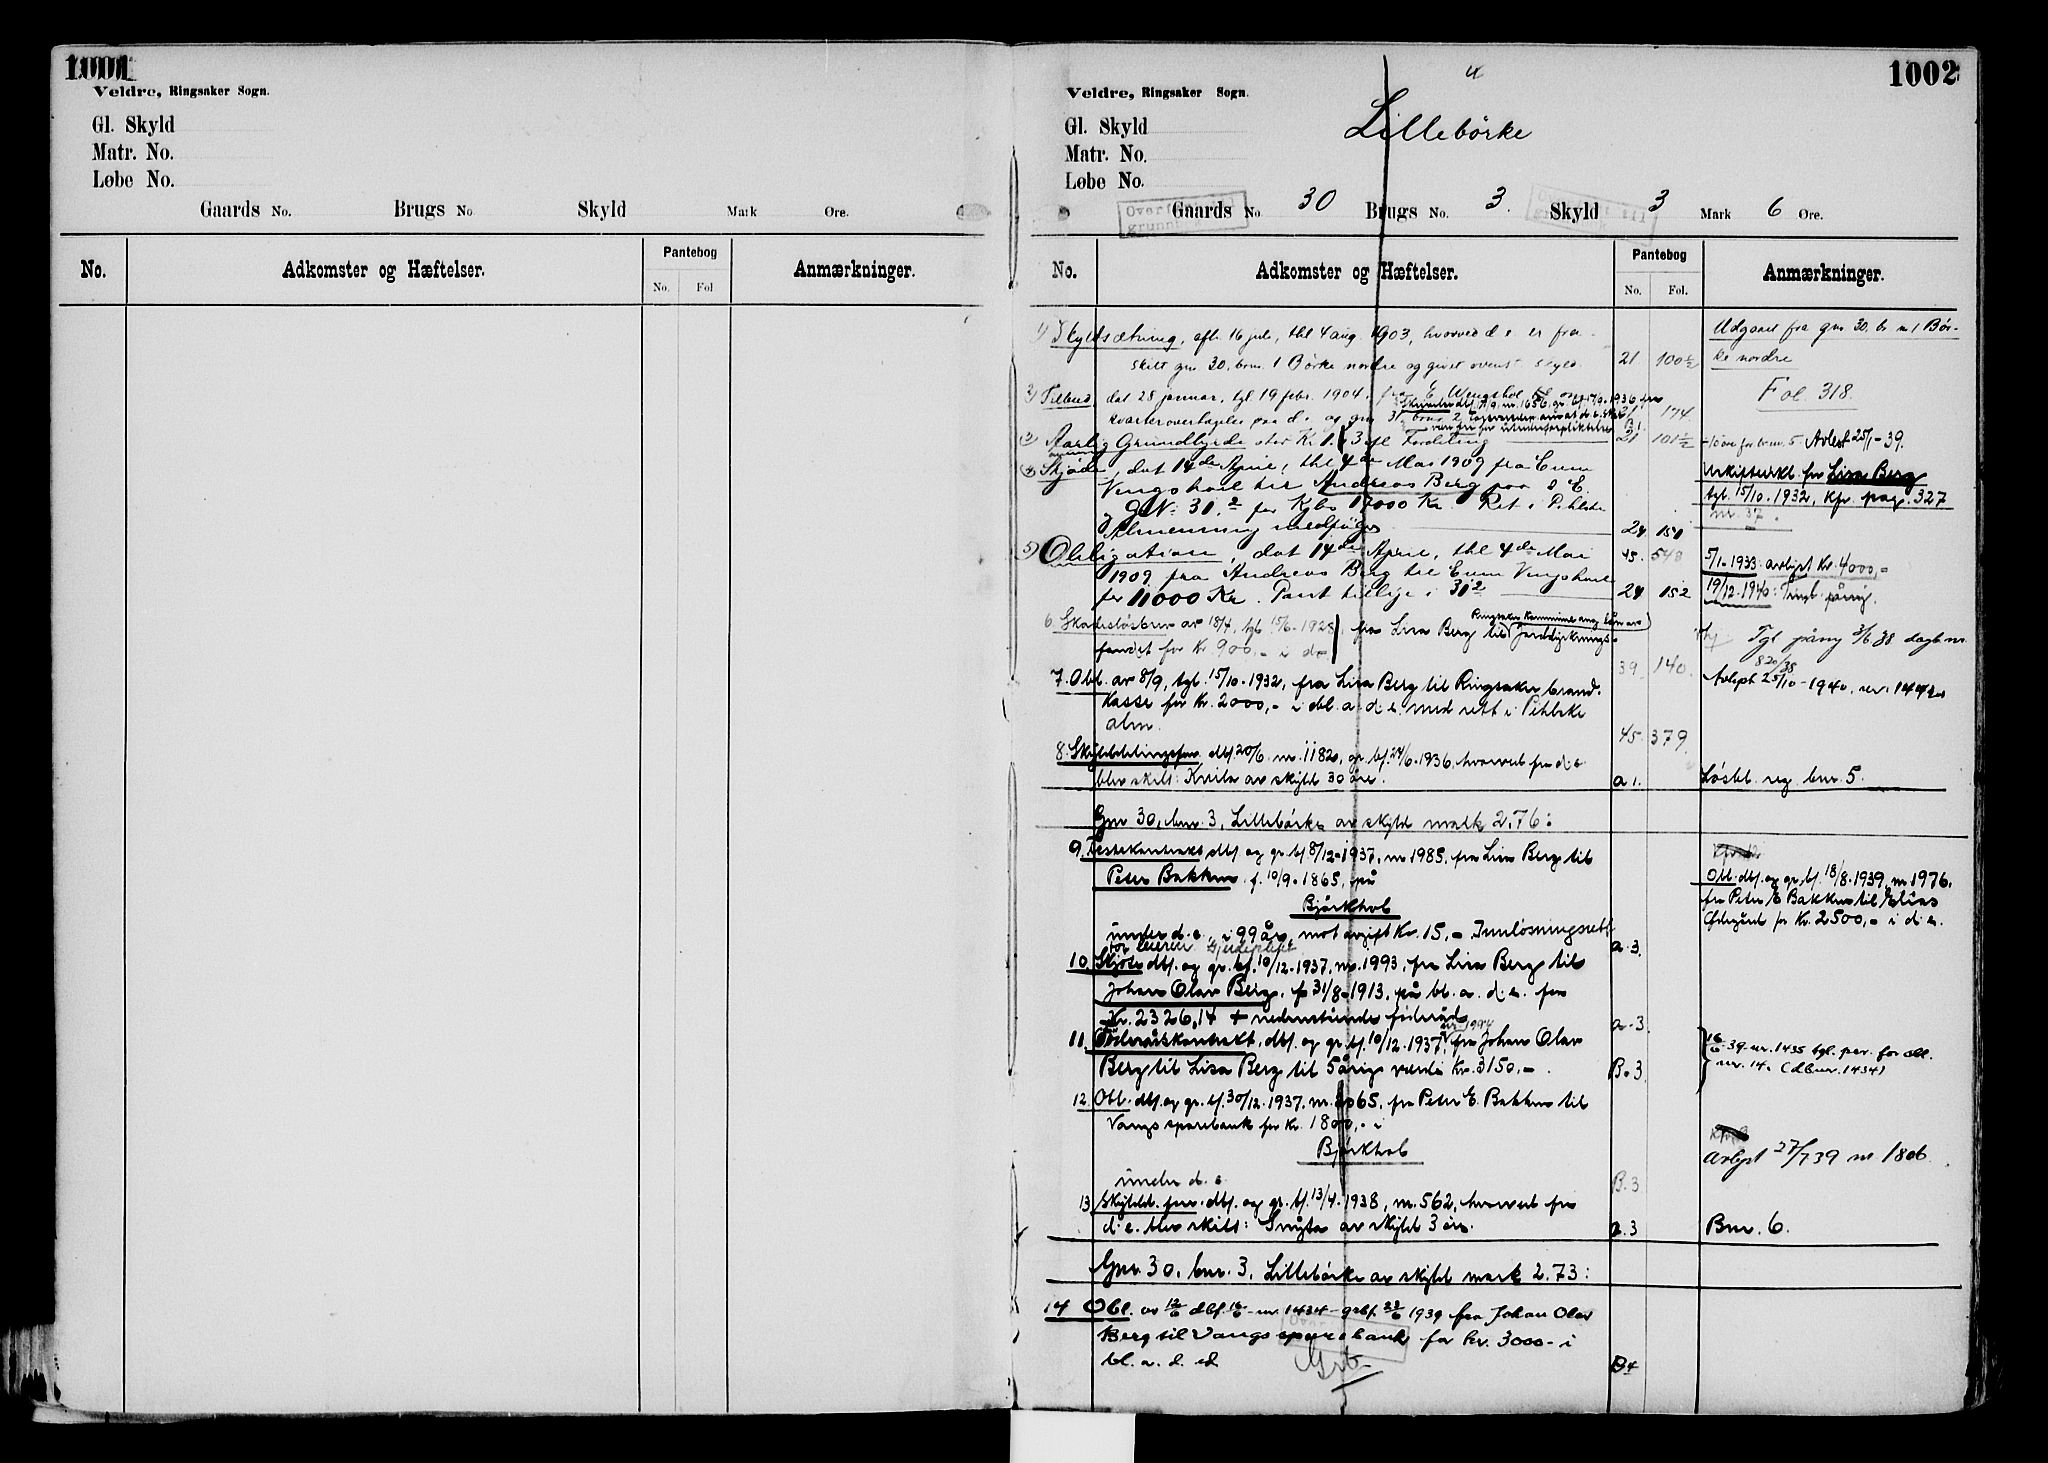 1001
Veldre, Ringsaker Sogn.
Gl. Skyld
Matr. No.
Løbe No.
Gaards No. Brugs No. Skyld Mark Øre.
No. Adkomster og Hæftelser. Pantebog No. Fol Anmærkninger.
1002
4
Veldre, Ringsaker Sogn.
Gl. Skyld
Lillebörke
Matr. No.
Løbe No.
Gaards No. 30 Brugs No. 3. Skyld 3 Mark 6 Øre.
No. Adkomster og Hæftelser. Pantebog No. Fol. Anmærkninger.
1) Skyldsætning, afh. 16 juli, thl 4 aug. 1903, hvorved d. e. er fra-
skilt gnr 30, brnr. 1 Børke nordre og givet ovenst. skyld. 21. 100½
Udgaaet fra gnr 30. br nr 1 Bör-
ke nordre
Fol. 318.
2) Tilbud, dat 28 januar, tgl 19 febr. 1904, fra E. Wengshol
paa d. e. og gnr 31 brnr 2 174
3) Aarlig Grundbyrde stor Kr 1. 21 101½
Avlest 25/1-39.
4) Skjöde, dat 14de April, thl 4de Mai 1909 fra Even
Vengshoel til Andreas Berg paa d E.
og GN: 31.2 for Kjbs 17000 Kr. Ret i Pihlske
Almenning medfölger 24 151
Uskifteerkl fra Lisa Berg
tgl. 15/10. 1932, Kfr. pag. 327
nr. 37.
5) Obligation, dat 14de April, thl 4de Mai 45. 548
1909 fra Andreas Berg til Even Vengshoel
for 11000 Kr. Pant tillige i 31.2 24 152
5/1-1933: avlyst Kr. 4000,-
19/12.1940: Tingl. påny.
6. Skadesløsbrev av 18/4, tgl. 15/6-1928, fra Lisa Berg til Jorddyrknings-
fondet for Kr. 900,- i d.e. 39. 140.
Tgl påny 3/6 38 dagb nr.
820/38
Avlyst 25/10-1940, nr. 1442
7. Obl. av 8/9, tgl. 15/10-1932, fra Lisa Berg til Ringsaker brand-
kasse for Kr. 2000,- i bl. a. d. e. med rett i Pihlske
alm. 45. 379.
8. Skylddelingsforr. dbf. 20/6. nr. 1182, gr. bf. 24/6.1936, hvorved fra d. e
blev skilt: Kvila av skyld 30 øre. a 1. Løsbl. reg. bnr. 5.
Gnr 30, bnr. 3, Lillebörke av skyld mark 2.76:
9. Festekontrakt dbf. og gr. bf. 8/12-1937, nr 1985, fra Lisa Berg til
Peter Bakken f. 10/9.1865, på
Bjørkhol
under d. e., i 99 år, mot avgift Kr. 15,- Innløsningsrett
for eieren a-3.
Obl. dbf. og gr. bf. 18/8.1939, nr 1976,
fra Peter E Bakken til Elias
Ødegård for Kr. 2500,- i d. e.
10. Skjøte dbf. og gr. bf. 10/12-1937, nr. 1993, fra Lisa Berg til
Johan Olav Berg, f 31/8-1913, på bl. a. d. e. for
Kr. 2326,14 + nedenstående føderåd a-3.
11. Føderådskontrakt, dbf. og gr. bf. 10/12-1937, nr 1994 fra Johan Olav
Berg til Lisa Berg til 5årig verdi Kr. 3150,-. B.3.
16/6 39 nr. 1435 tgl. par. for obl.
nr. 14. (dbnr. 1434)
12. Obl. dbf. og gr. bf. 30/12.1937, nr. 2065, fra Peter E. Bakken til
Vangs sparebank for Kr. 1800,- i
Bjørkhol
under d. e B.3
Avlyst 27/7 39 nr 1806.
13. Skyldd. forr. dbf. og gr. bf. 13/4.1938, nr. 562, hvorved fra
d. e. blev skilt: Snuta av skyld 3 øre. a.3 Bnr. 6.
Gnr. 30. bnr. 3. Lillebörke av skyld mark 2.73:
14 Obl. av 12/6 dbf. 16/6 - nr. 1434 - grbf. 23/6 1939 fra Johan Olav
Berg til Vangs sparebank for kr. 3000- i
bl. a. d. ed B4